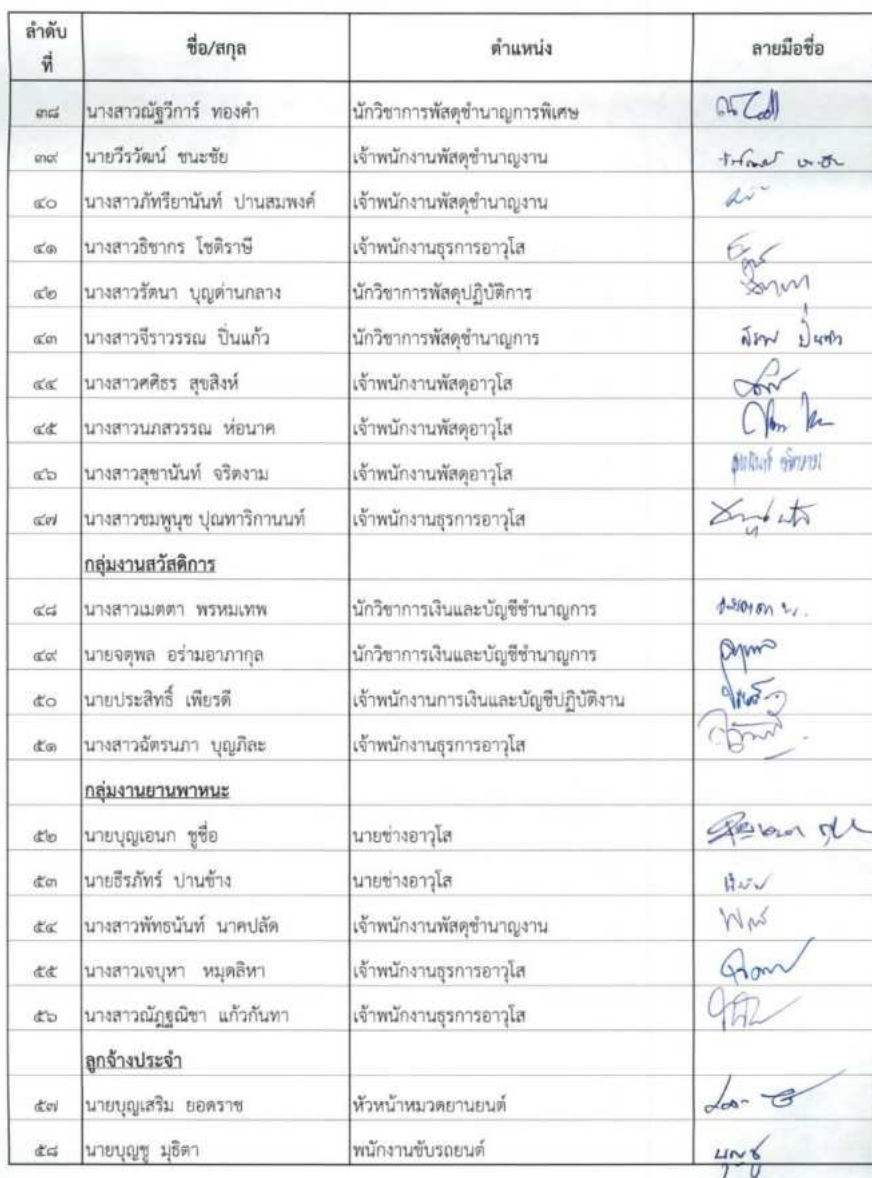 ลำดับที่ ชื่อ/สกุล ตำแหน่ง ลายมือชื่อ
๓๘ นางสาวณัฐวีการ์ ทองคำ นักวิชาการพัสดุชำนาญการพิเศษ
๓๙ นายวีรวัฒน์ ชนะชัย เจ้าพนักงานพัสดุชำนาญงาน
๔๐ นางสาวภัทรียานันท์ ปานสมพงค์ เจ้าพนักงานพัสดุชำนาญงาน
๔๑ นางสาวธิชากร โชติราษี เจ้าพนักงานธุรการอาวุโส
๔๒ นางสาวรัตนา บุญด่านกลาง นักวิชาการพัสดุปฏิบัติการ
๔๓ นางสาวจีราวรรณ ปิ่นแก้ว นักวิชาการพัสดุชำนาญการ
๔๔ นางสาวศศิธร สุขสิงห์ เจ้าพนักงานพัสดุอาวุโส
๔๕ นางสาวนภสวรรณ ห่อนาค เจ้าพนักงานพัสดุอาวุโส
๔๖ นางสาวสุชานันท์ จริตงาม เจ้าพนักงานพัสดุอาวุโส
๔๗ นางสาวชมพูนุช ปุณฑาริกานนท์ เจ้าพนักงานธุรการอาวุโส
กลุ่มงานสวัสดิการ
๔๘ นางสาวเมตตา พรหมเทพ นักวิชาการเงินและบัญชีชำนาญการ
๔๙ นายจตุพล อร่ามอาภากุล นักวิชาการเงินและบัญชีชำนาญการ
๕๐ นายประสิทธิ์ เพียรดี เจ้าพนักงานการเงินและบัญชีปฏิบัติงาน
๕๑ นางสาวฉัตรนภา บุญภิละ เจ้าพนักงานธุรการอาวุโส
กลุ่มงานยานพาหนะ
๕๒ นายบุญเอนก ชูชื่อ นายช่างอาวุโส
๕๓ นายธีรภัทร์ ปานช้าง นายช่างอาวุโส
๕๔ นางสาวพัทธนันท์ นาคปลัด เจ้าพนักงานพัสดุชำนาญงาน
๕๕ นางสาวเจบุหา หมุดลิหา เจ้าพนักงานธุรการอาวุโส
๕๖ นางสาวณัฏฐณิชา แก้วกันทา เจ้าพนักงานธุรการอาวุโส
ลูกจ้างประจำ
๕๗ นายบุญเสริม ยอดราช หัวหน้าหมวดยานยนต์
๕๘ นายบุญชู มุธิตา พนักงานขับรถยนต์ บุญชู